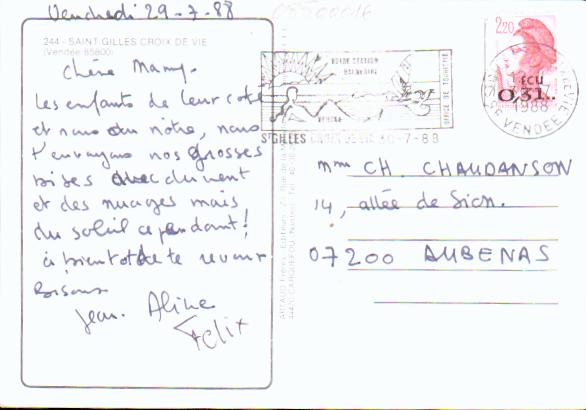 Vendredi 29-7-88
244 - SAINT GILLES CROIX DE VIE
(Vendée 85800)
Chère Mamy.
Les enfants de leur coté
et nous du nôtre, nous
t'envoyons nos grosses
bises avec du vent
et des nuages mais
du soleil cependant!
à bientôt de te revoir
Bisous
Jean. Aline
Felix
2,20
ECU
0,31
1988
VENDEE
OFFICE DE TOURISME
ST GILLES CROIX DE VIE 30-7-88
Mme CH. CHAUDANSON
14, allée de Sion.
07200 AUBENAS